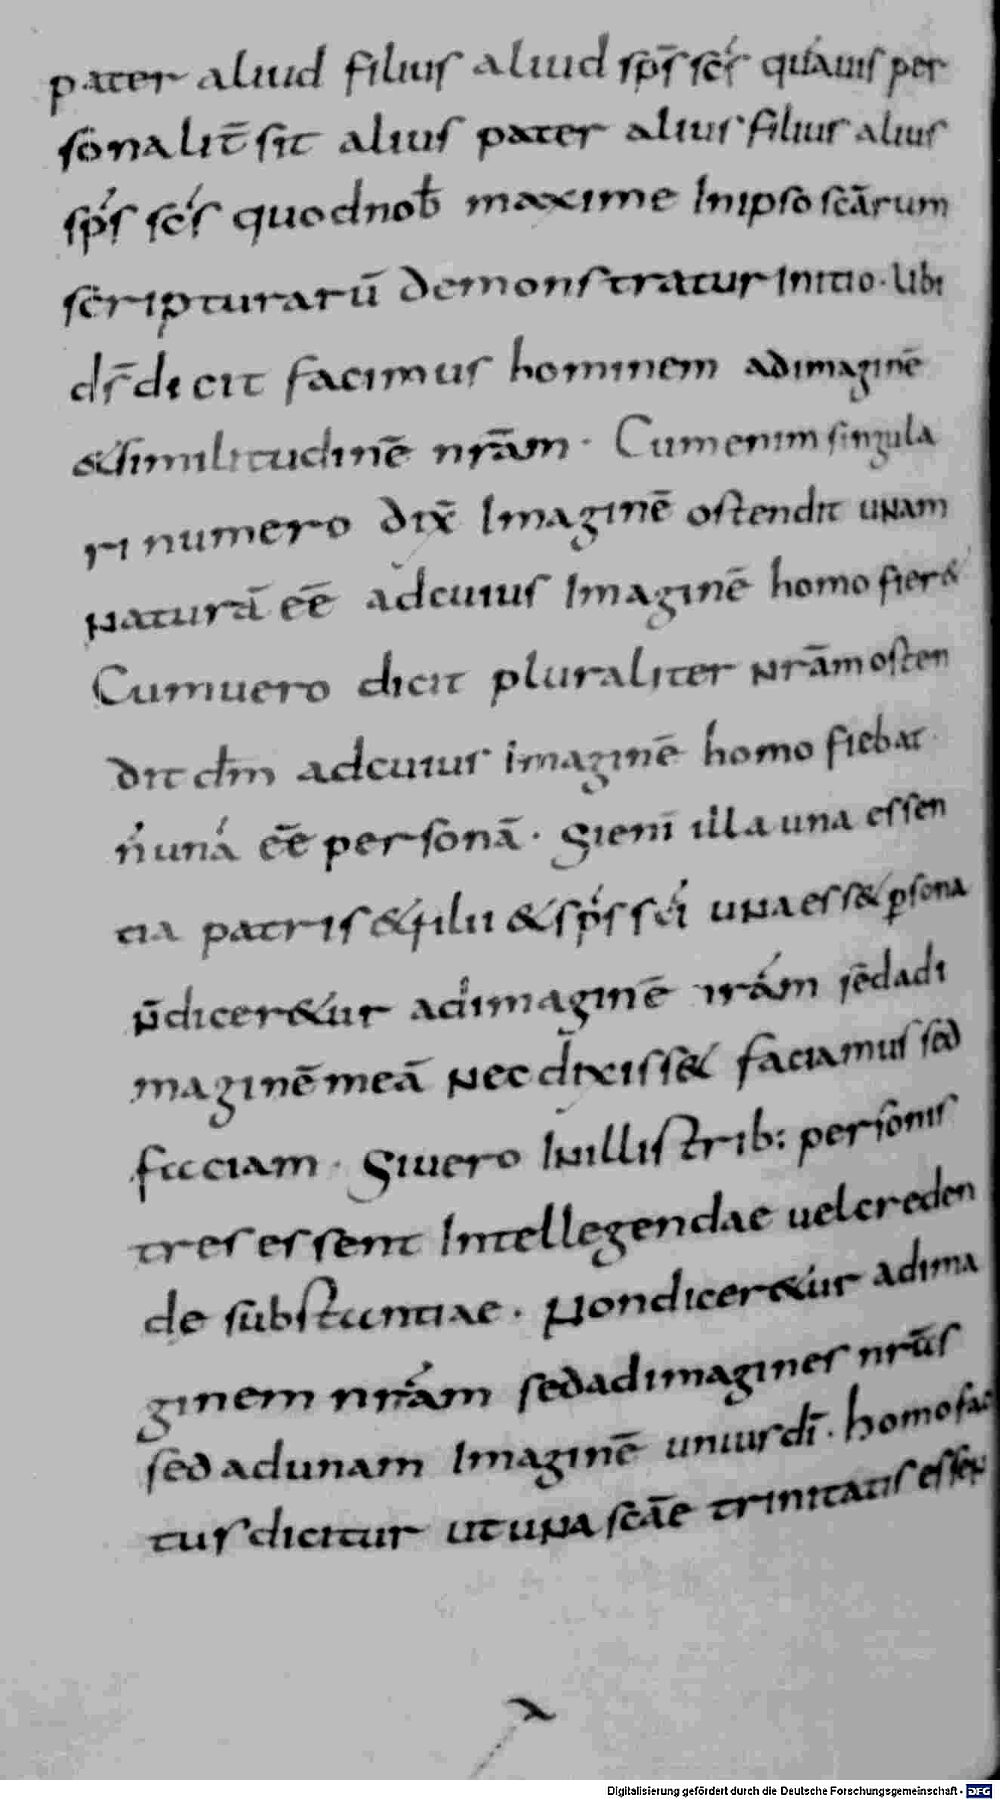 pater aliud filius aliud sp̄s sc̄s quáuis per
sonalit̄ sit alius pater alius filius alius
sp̄s sc̄s quodnob̄ maxime Inipso scārum
scripturarū demonstratur initio · Ubi
ds̄ dicit facimus hominem adimaginē
&similitudinē nr̄am · Cumenim singula
ri numero dix̄ Imaginē ostendit unam
naturā eē adcuius Imaginē homo fier&
Cumuero dicit pluraliter nr̄am osten
dit dm̄ adcuius imaginē homo fiebat ·
ń uná eē personā · Sieni illa una essen
tia patris &filii &sp̄s sc̄i una ess& ꝑsona
n̄dicer&ur adimaginē nrám sēdadi
maginē meā Nec dixiss& faciamus sed
facciam · Siuero Inillis trib: personis
tres essent Intellegendae uelcreden
de substantiae · Nondicer&ur adima
ginem nrám sedadimagines nrūs
sed adunam Imaginē unius dī · homo fac
tus dicitur ut una scāe trinitatis essen
Digitalisierung gefördert durch die Deutsche Forschungsgemeinschaft - DFG